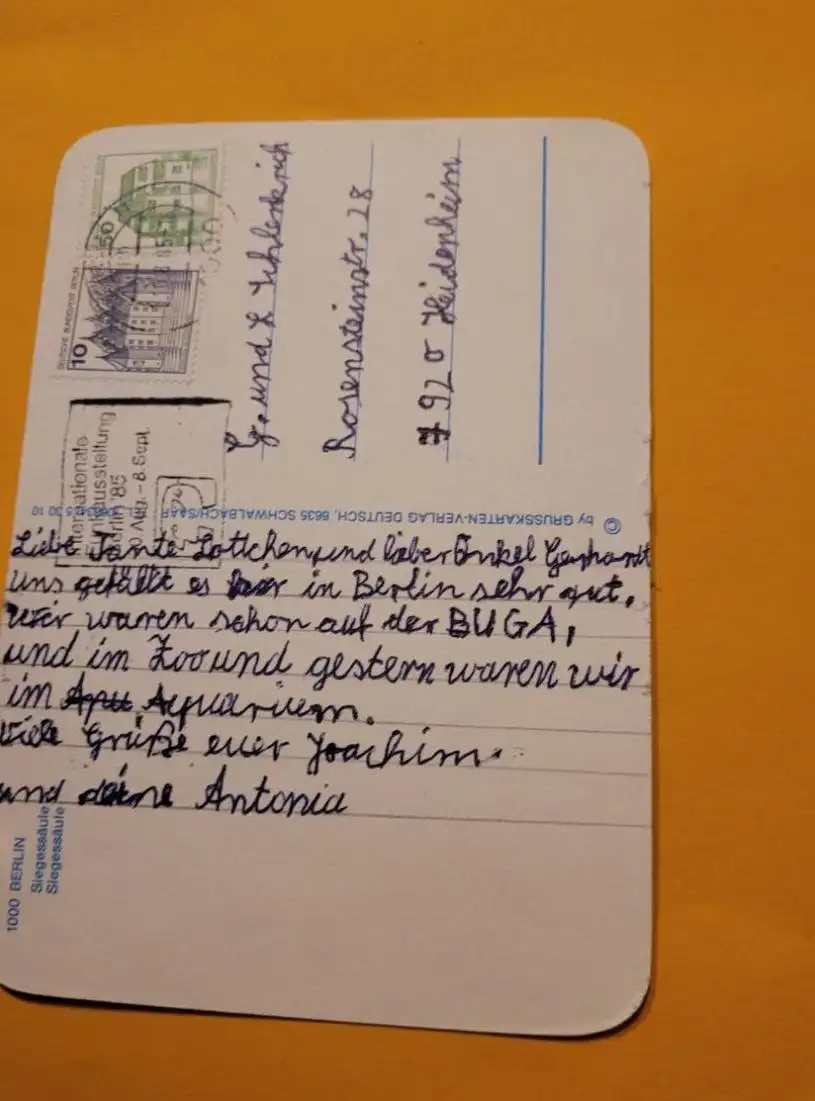 DEUTSCHE BUNDESPOST BERLIN
50
10
Internationale
Funkausstellung
Berlin '85
30 Aug. - 8. Sept.
G. und L
Rosensteinstr. 28
7920 Heidenheim
© by GRUSSKARTEN-VERLAG DEUTSCH, 6635 SCHWALBACH/SAAR
Liebe Tante Lottchen, und lieber Onkel Gerhardt
uns gefällt es hier in Berlin sehr gut.
wir waren schon auf der BUGA,
und im Zoo und gestern waren wir
im Aqu Aquarium.
Viele Grüße euer Joachim.
und deine Antonia
1000 BERLIN
Siegessäule
Siegessäule